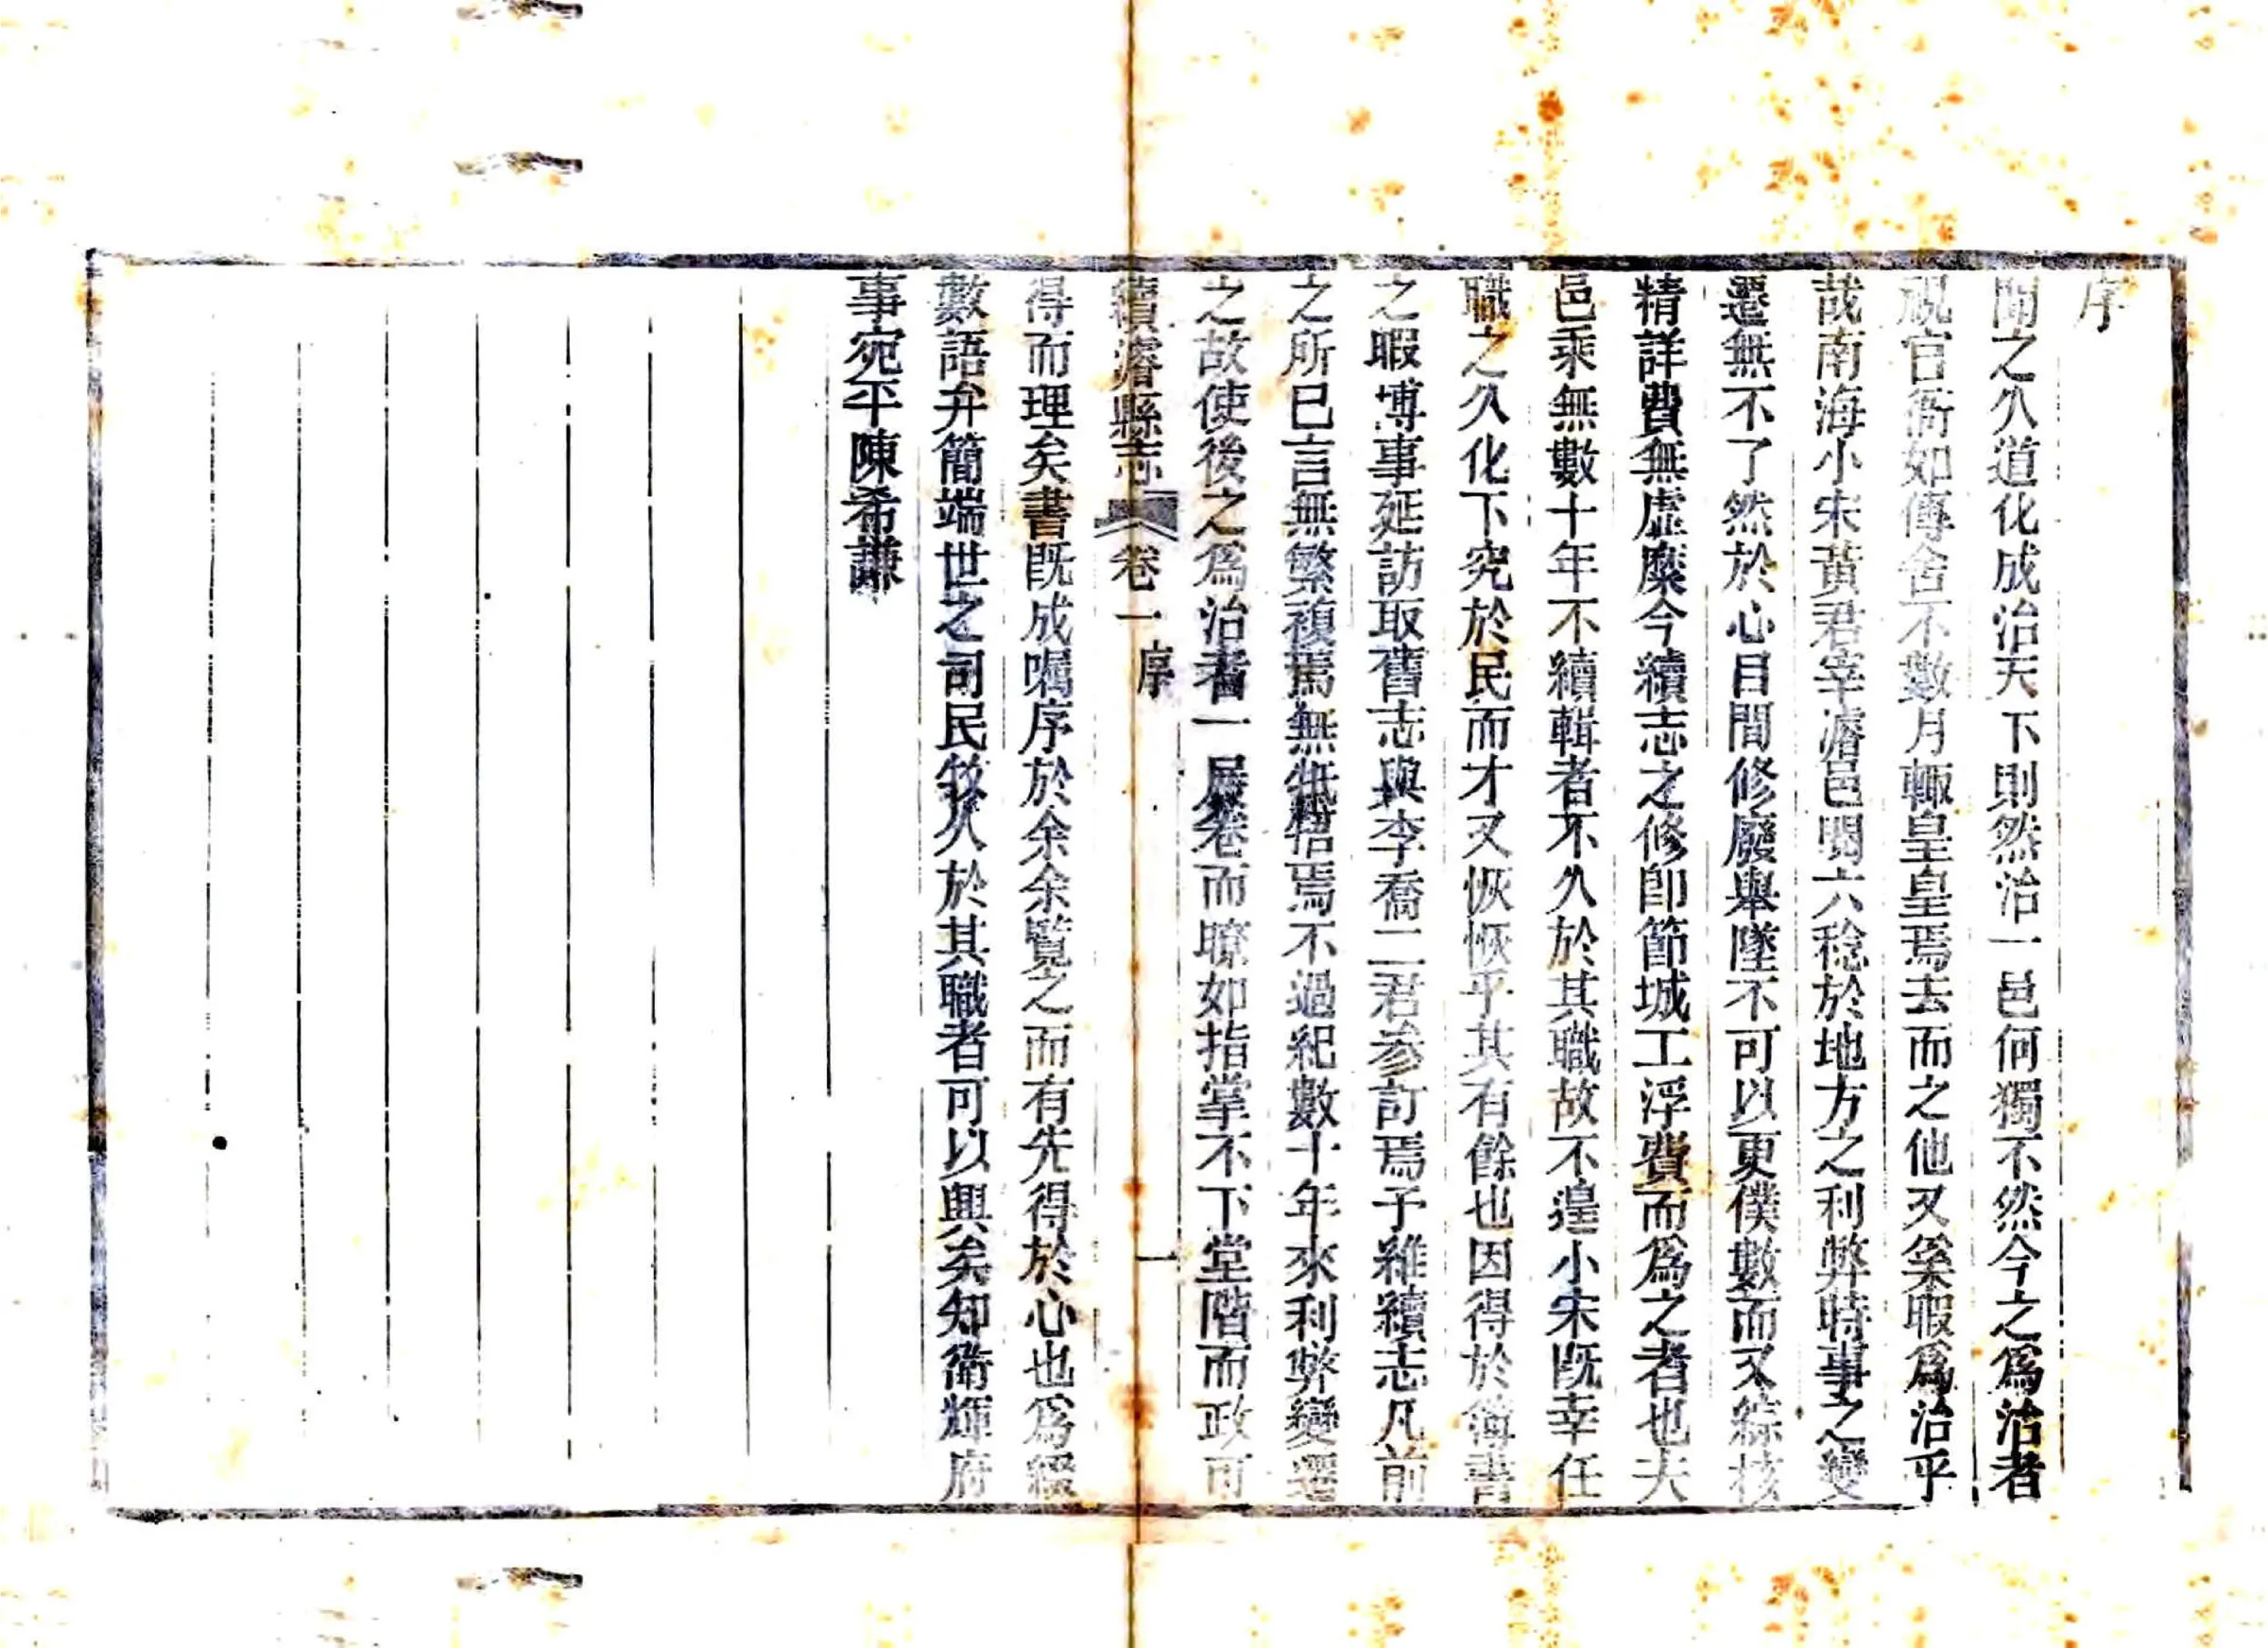 序
聞之久道化成治天下則然治一邑何獨不然今之爲治者
視官衙如傳舍不數月輒皇皇焉去而之他又奚暇爲治乎
哉南海小宋黃君宰濬邑閱六稔於地方之利弊時事之變
遷無不了然於心目間修廢舉墜不可以更僕數而又綜核
精詳費無虛糜今續志之修卽節城工浮費而爲之者也夫
邑乘無數十年不續輯者不久於其職故不遑小宋旣幸任
職之久化下究於民而才又恢恢乎其有餘也因得於簿書
之暇博事延訪取舊志與李喬二君參訂焉予維續志凡前
之所已言無繁複焉無牴牾焉不過紀數十年來利弊變遷
之故使後之爲治者一展卷而瞭如指掌不下堂階而政可
續濬縣志 卷一 序 一
得而理矣書旣成囑序於余余覽之而有先得於心也爲綴
數語弁簡端世之司民牧久於其職者可以興矣知衛輝府
事宛平陳希謙